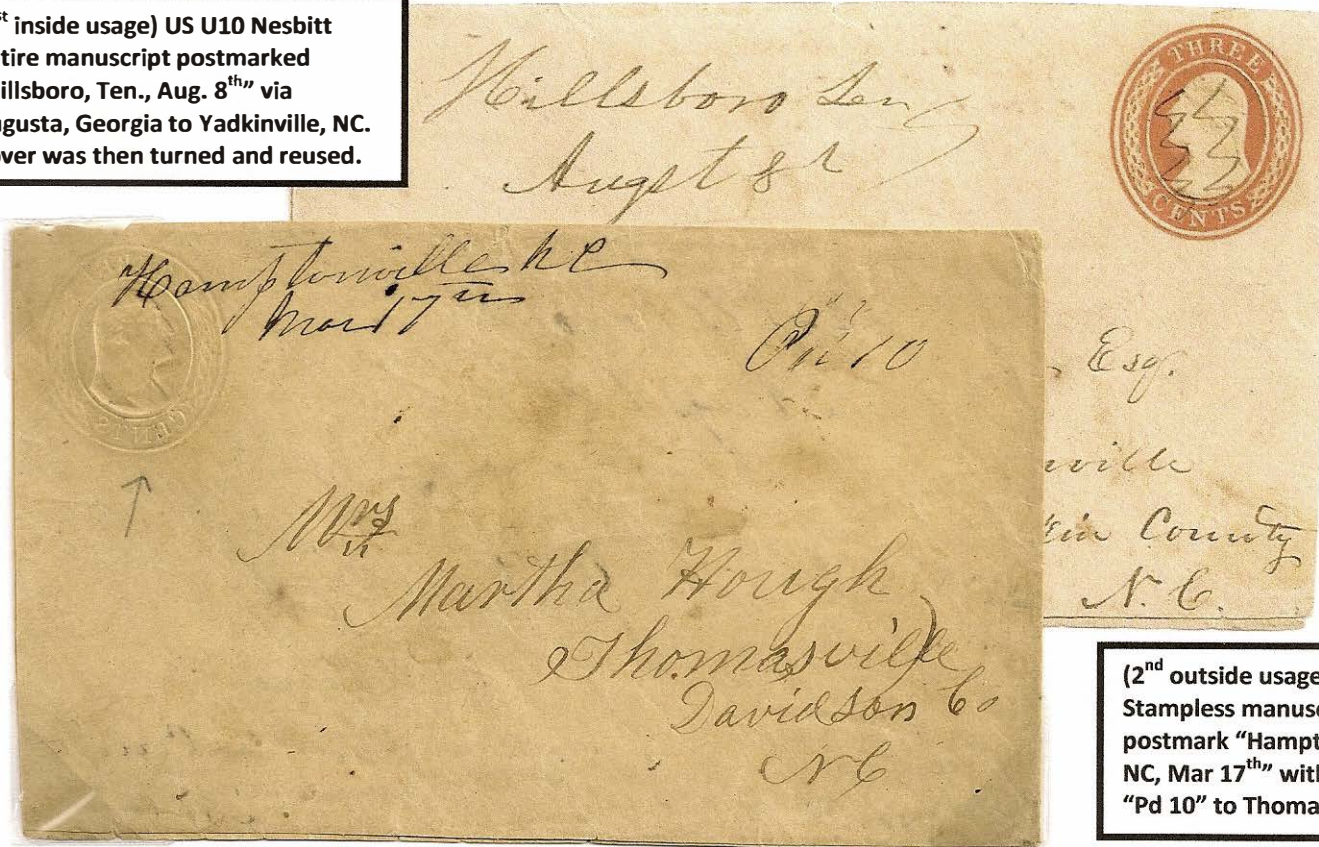 st inside usage) US U10 Nesbitt
tire manuscript postmarked
illsboro, Ten., Aug. 8th” via
gusta, Georgia to Yadkinville, NC.
over was then turned and reused.
Hillsboro Ten
Augst 8
THREE
CENTS
Esq.
ville
kin County
N. C.
Hamptonville NC
Mar 17th
Pd 10
CENTS
Mrs
Martha Hough
Thomasville
Davidson Co
NC
(2nd outside usage
Stampless manusc
postmark “Hampt
NC, Mar 17th” with
“Pd 10” to Thoma